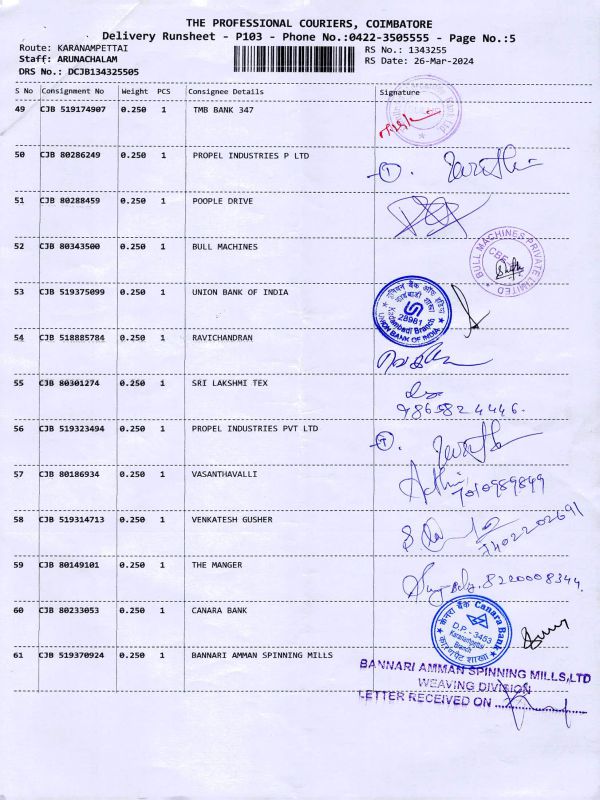 THE PROFESSIONAL COURIERS, COIMBATORE
Delivery Runsheet - P103 - Phone No.:0422-3505555 - Page No.:5
Route: KARANAMPETTAI RS No.: 1343255
Staff: ARUNACHALAM RS Date: 26-Mar-2024
DRS No.: DCJB134325505
S No Consignment No Weight PCS Consignee Details Signature
49 CJB 519174907 0.250 1 TMB BANK 347
50 CJB 80286249 0.250 1 PROPEL INDUSTRIES P LTD
51 CJB 80288459 0.250 1 POOPLE DRIVE
52 CJB 80343500 0.250 1 BULL MACHINES
BULL MACHINES PRIVATE LIMITED
CBE
53 CJB 519375099 0.250 1 UNION BANK OF INDIA
यूनियन बैंक ऑफ इंडिया
28981
Kadambadi Branch
UNION BANK OF INDIA
54 CJB 518885784 0.250 1 RAVICHANDRAN
55 CJB 80301274 0.250 1 SRI LAKSHMI TEX
9865824446.
56 CJB 519323494 0.250 1 PROPEL INDUSTRIES PVT LTD
57 CJB 80186934 0.250 1 VASANTHAVALLI
7010989849
58 CJB 519314713 0.250 1 VENKATESH GUSHER
7402202691
59 CJB 80149101 0.250 1 THE MANGER
8220008344.
60 CJB 80233053 0.250 1 CANARA BANK
केनरा बैंक Canara Bank
D.P. - 3453
Karanampettai
Branch
61 CJB 519370924 0.250 1 BANNARI AMMAN SPINNING MILLS
BANNARI AMMAN SPINNING MILLS,LTD
WEAVING DIVISION
LETTER RECEIVED ON